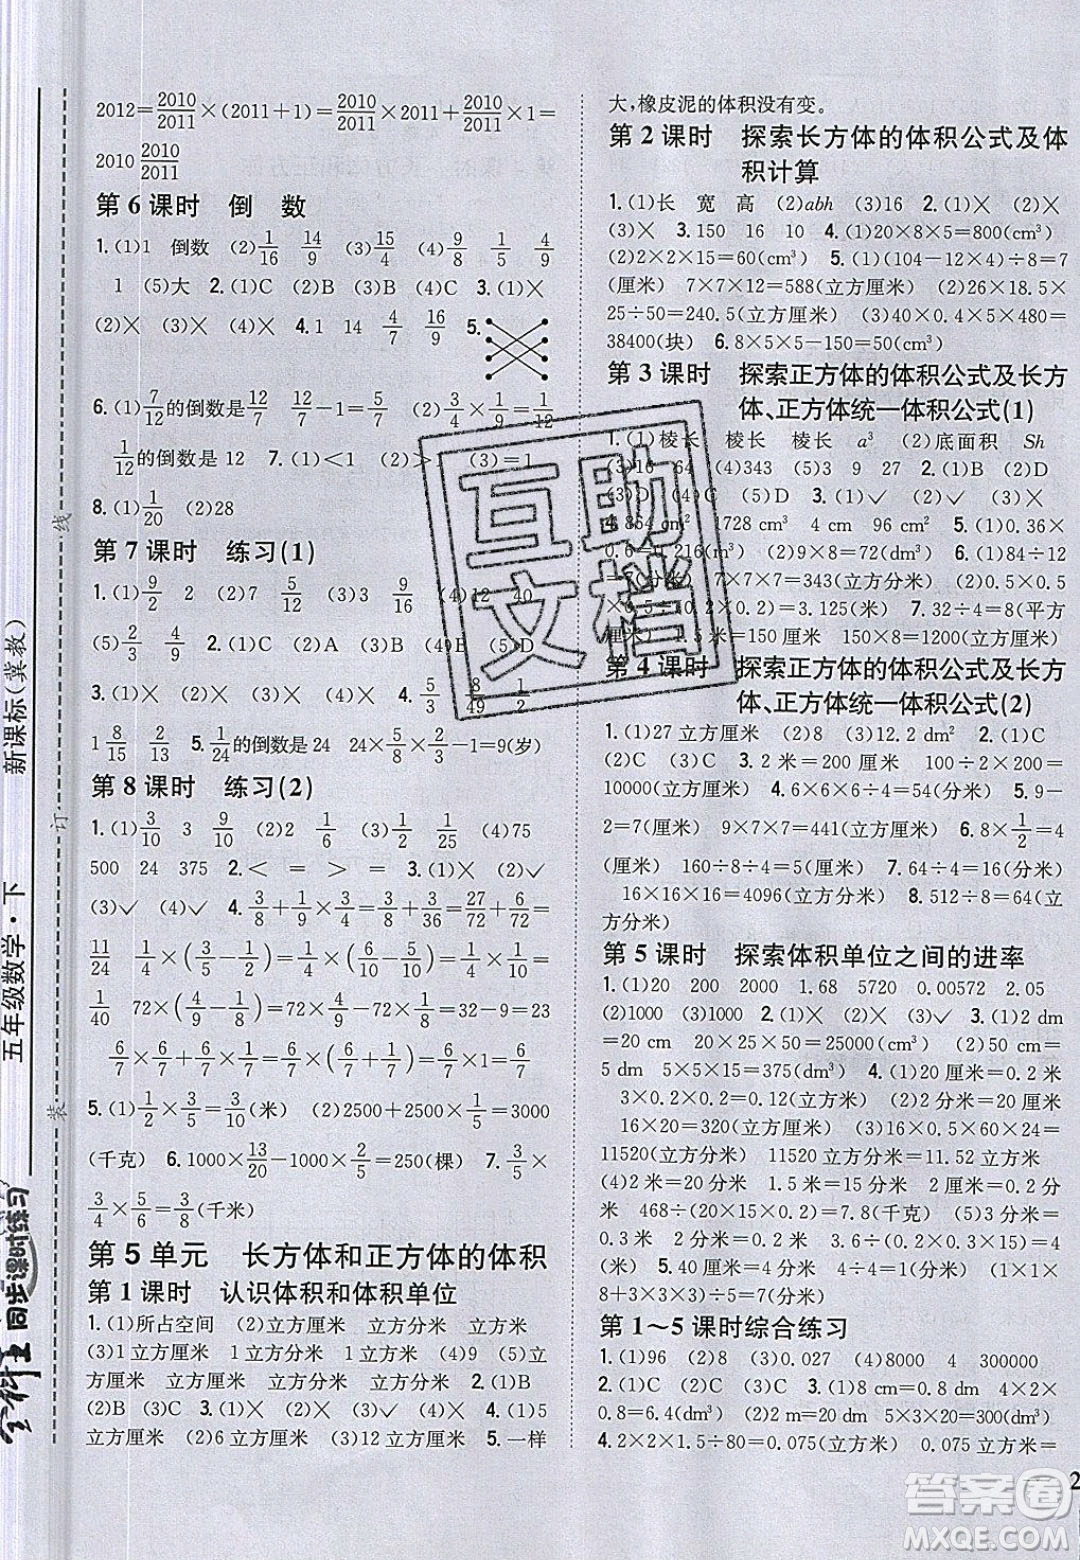 2012=2010/2011×(2011+1)=2010/2011×2011+2010/2011×1=
2010 2010/2011
第6课时 倒 数
1.(1)1 倒数 (2)1/16 14/9 (3)15/4 (4)9/8 1/5 4/9
1 (5)大 2.(1)C (2)B (3)B (4)C 3.(1)×
(2)× (3)× 4.1 14 4/7 16/9 5.
6.(1)7/12的倒数是12/7 12/7-1=5/7 (2)3/4×1/9=1/12
1/12的倒数是12 7.(1)<1 (2)> (3)=1
8.(1)1/20 (2)28
第7课时 练习(1)
1.(1)9/2 2 (2)7 5/12
(5)2/3 4/9 2.(1)C (2)A
3.(1)× (2)× (3)× (4)× 4.5/3 8/49 1/2
1 8/15 2/13 5.1/24的倒数是24 24×5/8×2/3-1=9(岁)
第8课时 练习(2)
1.(1)3/10 3 9/10 (2)2 1/6 (3)1/2 1/25 (4)75
500 24 375 2.< = > = 3.(1)× (2)√
(3)√ 4.3/8+1/9×3/4=3/8+3/36=27/72+6/72=
11/24 1/16×(3/5-1/2)×4=1/16×4×(3/5-1/2)=
1/40 72×(4/9-1/8)=72×4/9-72×1/8=32-9=
6/7×6/7+1/7×6/7=6/7×(6/7+1/7)=6/7×1=6/7
5.(1)1/2×3/5=3/10(米) (2)2500+2500×1/5=3000
(千克) 6.1000×13/20-1000×2/5=250(棵) 7.3/5×
3/4×5/6=3/8(千米)
第5单元 长方体和正方体的体积
第1课时 认识体积和体积单位
1.(1)所占空间 (2)立方厘米 立方分米 立方米
(3)1立方厘米 1立方分米 1立方米 (4)9 (5)立
方分米 立方厘米 立方分米 立方米 2.(1)B
(2)B (3)C 3.(1)× (2)× (3)√ (4)× 4.(1)5
立方厘米 (2)6立方厘米 (3)12立方厘米 5.一样
大,橡皮泥的体积没有变。
第2课时 探索长方体的体积公式及体
积计算
1.(1)长 宽 高 (2)abh (3)16 2.(1)× (2)×
(3)× 3.150 16 10 4.(1)20×8×5=800(cm³)
(2)2×2×15=60(cm³) 5.(1)(104-12×4)÷8=7
(厘米) 7×7×12=588(立方厘米) (2)10×18.5×
25÷50=240.5(立方厘米) (3)40×0.4×5×480=
38400(块) 6.8×5×5-150=50(cm³)
第3课时 探索正方体的体积公式及长方
体、正方体统一体积公式(1)
1.(1)棱长 棱长 棱长 a³ (2)底面积 Sh
(3)16 64 (4)343 (5)3 9 27 2.(1)B (2)C
(3)D (4)C (5)D 3.(1)√ (2)× (3)√
4.864 cm² 1728 cm³ 4 cm 96 cm² 5.(1)0.36×
0.6=0.216(m³) (2)9×8=72(dm³) 6.(1)84÷12=
7(分米) 7×7×7=343(立方分米) (2)0.5×0.5
(米) 7.32÷4=8(平方
分米) 1.5米=150厘米 150×8=1200(立方厘米)
第4课时 探索正方体的体积公式及长方
体、正方体统一体积公式(2)
1.(1)27立方厘米 (2)8 (3)12dm² 2.(1)A
(2)C (3)C 3.2米=200厘米 100÷4×200=
5000(立方厘米) 4.6×6×6÷4=54(厘米) 5.9-
2=7(厘米) 9×7×7=441(立方厘米) 6.8×1/2=4
(厘米) 160÷8÷4=5(厘米) 7.64÷4=16(分米)
16×16×16=4096(立方分米) 8.512÷8=64(立
方分米)
第5课时 探索体积单位之间的进率
1.(1)20 200 2000 1.68 5720 0.00572 2.05
(2)1000 (3)1000 2.(1)× (2)× (3)√ 3.(1)2 dm
=20 cm 20×25×50=25000(cm³) (2)50 cm=
5 dm 5×5×15=375(dm³) 4.(1)20厘米=0.2米
3×0.2×0.2=0.12(立方米) (2)2分米=20厘米
16×20=320(立方厘米) (3)16×0.5×60×24=
11520(立方分米) 11520立方分米=11.52立方米
(4)2米=20分米 1.5米=15分米 20厘米=2分
米 468÷(20×15×0.2)=7.8(千克) (5)3米=30
分米 72÷(30×4)=0.6(立方分米) 5.(2×1×
8+3×1×8)×3×4÷5=96(立方厘米) 6.2×2×
2=8(立方分米)
第1～5课时综合练习
1.(1)96 (2)8 (3)0.027 (4)8000 4 300000
2.(1)C (2)B (3)C (4)A 3.(1)8 cm=0.8 dm 4×2×
0.8=6.4(dm³) (2)2 m=20 dm 5×3×20=300(dm³)
4.2×2×1.5÷80=0.075(立方米) 0.075立方米=
线 订 装
新课标(冀教)
五年级数学·下
全科王 同步课时练习
互助文档
答案圈
MXQE.COM
2